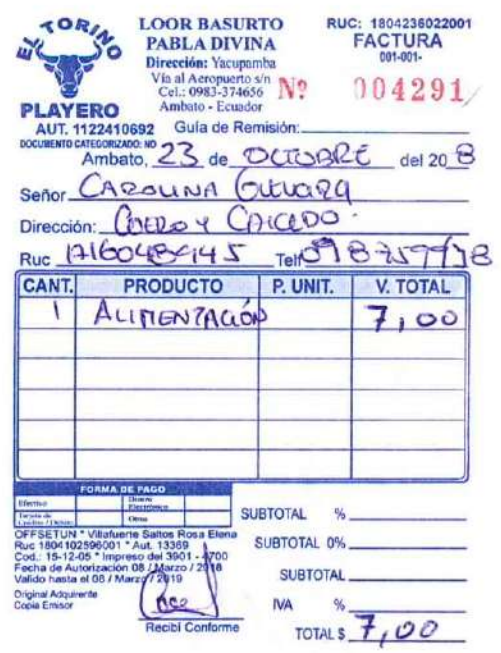 EL TORINO
PLAYERO
LOOR BASURTO
PABLA DIVINA
Dirección: Yacupamba
Vía al Aeropuerto s/n
Cel.: 0983-374656
Ambato - Ecuador
RUC: 1804236022001
FACTURA
001-001-
Nº 004291
AUT. 1122410692 Guía de Remisión:
DOCUMENTO CATEGORIZADO: NO
Ambato, 23 de OCTUBRE del 20 8
Señor CAROLINA GUEVARA
Dirección: Y CAICEDO.
Ruc Telf
CANT. PRODUCTO P. UNIT. V. TOTAL
1 ALIMENTACIÓN 7,00
FORMA DE PAGO
Efectivo Dinero Electrónico
Tarjeta de Crédito / Débito Otros
OFFSETUN * Villafuerte Saltos Rosa Elena
Ruc 1804102596001 * Aut. 13369
Cod.: 15-12-05 * Impreso del 3901 - 4700
Fecha de Autorización 08 / Marzo / 2018
Valido hasta el 08 / Marzo / 2019
Original Adquirente
Copia Emisor
Recibí Conforme
SUBTOTAL %
SUBTOTAL 0%
SUBTOTAL
IVA %
TOTAL $ 7,00